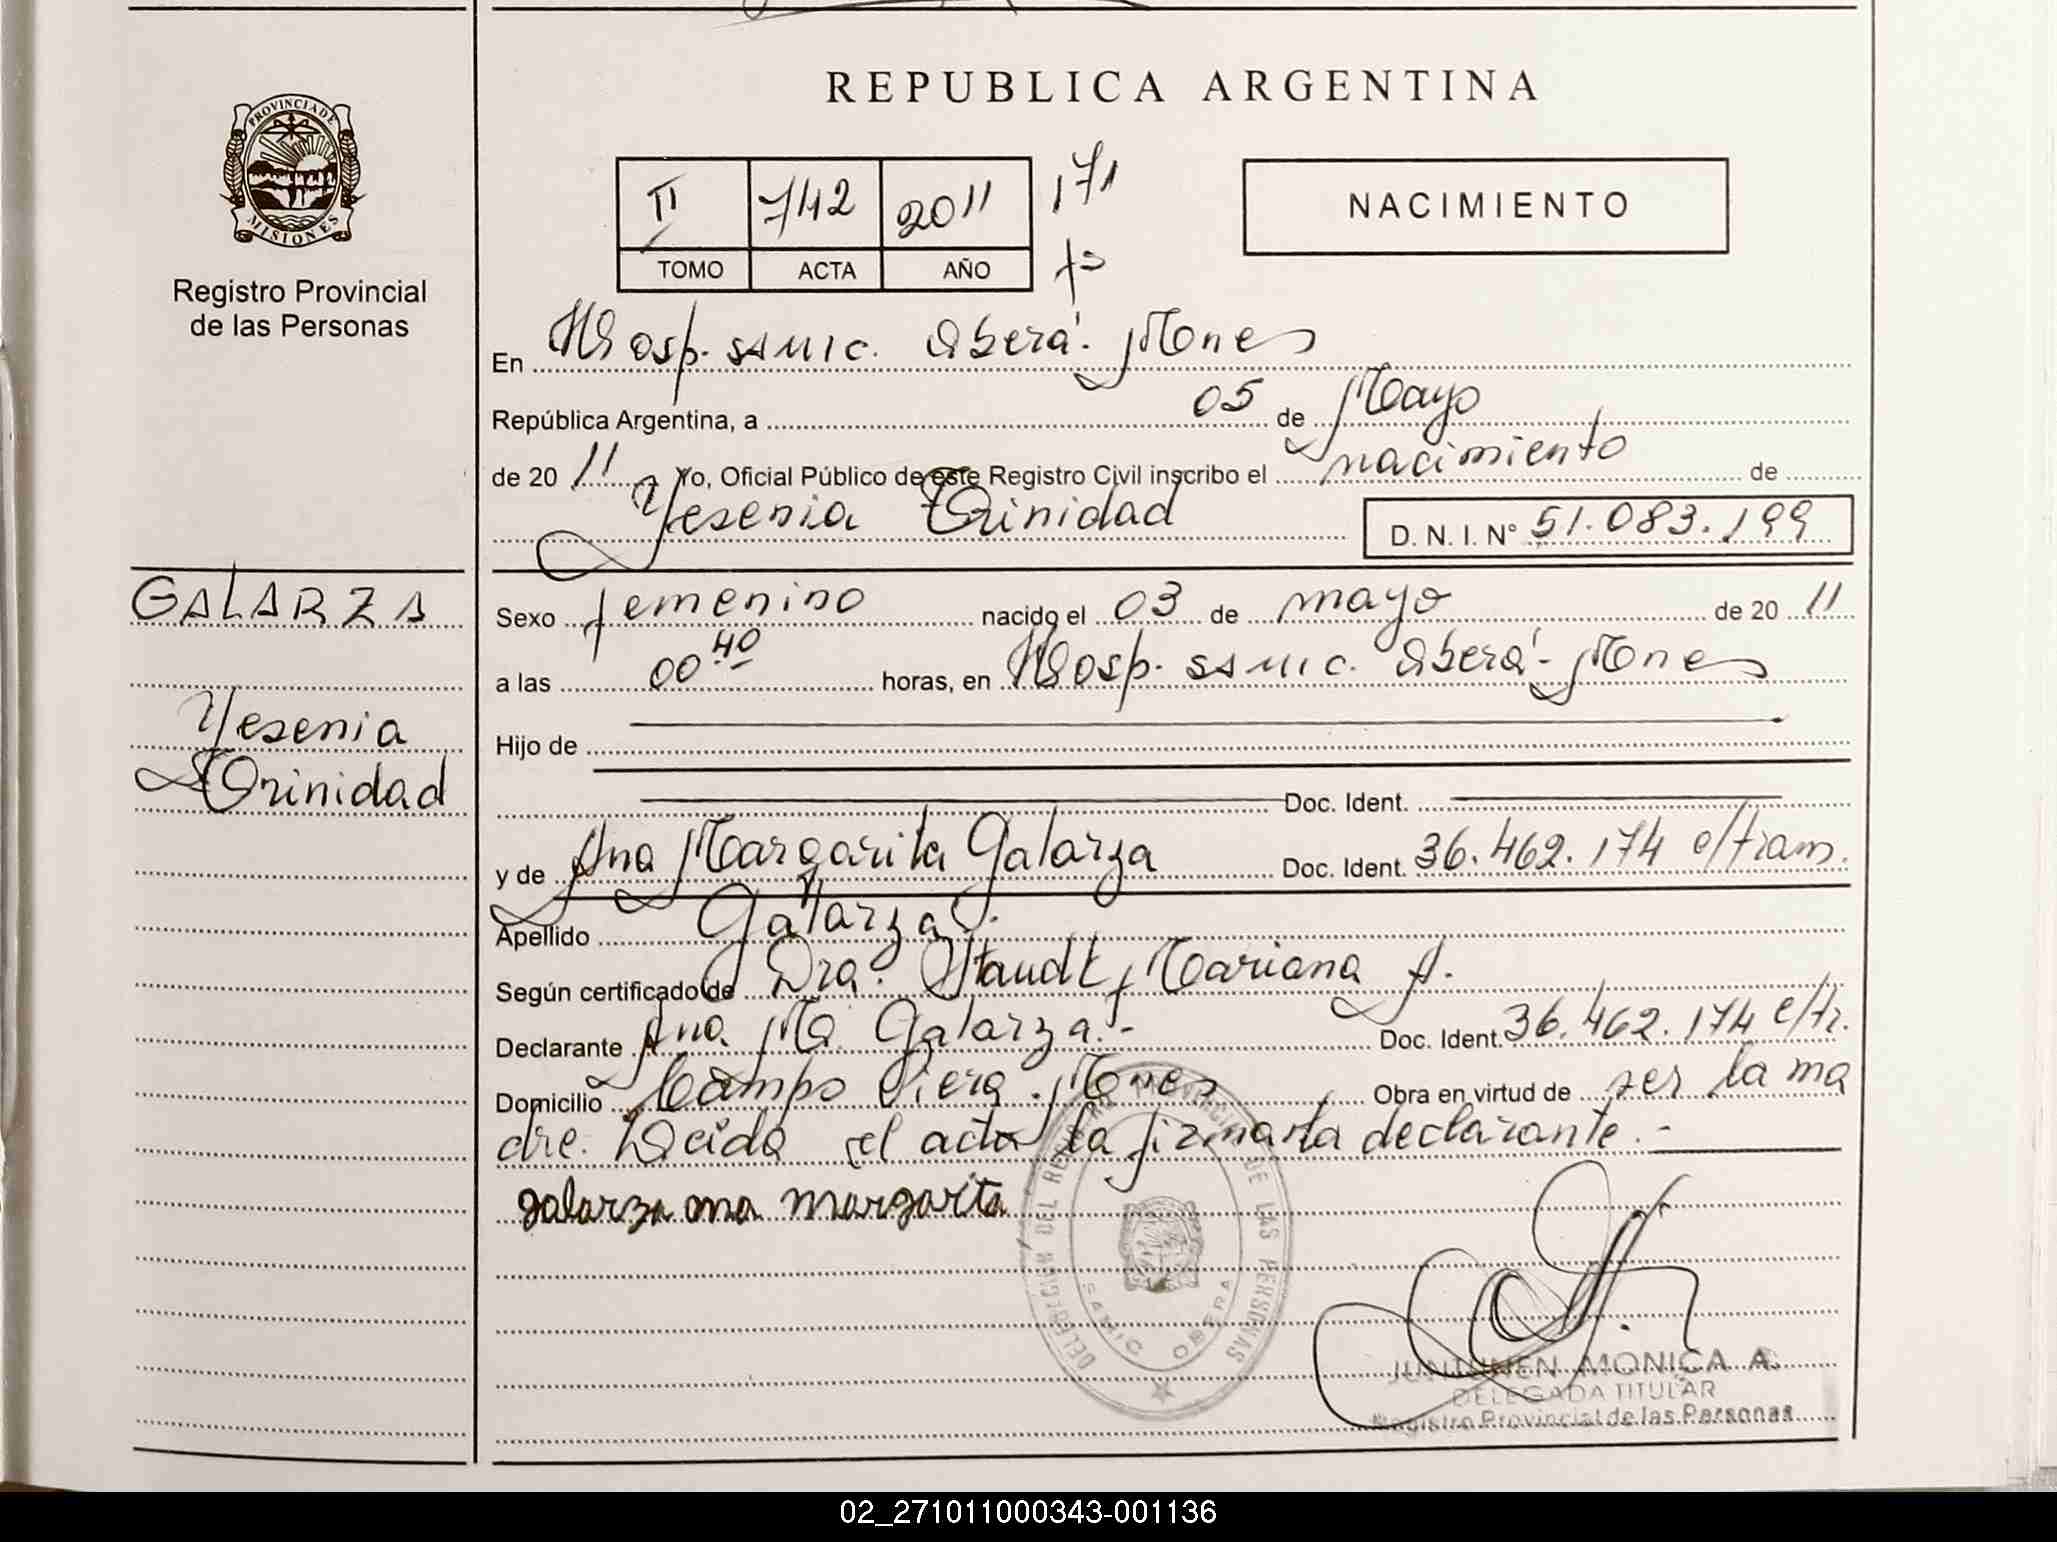 REPUBLICA ARGENTINA
PROVINCIA DE
MISIONES
Registro Provincial
de las Personas
II 742 2011 171
TOMO ACTA AÑO fº
NACIMIENTO
En Hosp. SAMIC. Oberá. Mnes
República Argentina, a 05 de Mayo
de 20 11 Yo, Oficial Público de este Registro Civil inscribo el nacimiento de
Yesenia Trinidad D. N. I. Nº 51.083.199
GALARZA
Yesenia
Trinidad
Sexo femenino nacido el 03 de mayo de 20 11
a las 00 40 horas, en Hosp. SAMIC. Oberá - Mnes
Hijo de
Doc. Ident.
y de Ana Margarita Galarza Doc. Ident. 36.462.174 e/tram.
Apellido Galarza.
Según certificado de Dra. Staudt, Mariana A.
Declarante Ana Ma. Galarza.- Doc. Ident. 36.462.174 e/tr.
Domicilio Campo Viera. Mnes Obra en virtud de ser la ma
dre. Leída el acta la firma la declarante.-
galarza ana margarita
DELEGACION DEL REGISTRO PROVINCIAL DE LAS PERSONAS
SAMIC OBERA
JUNTUNEN MONICA A.
DELEGADA TITULAR
Registro Provincial de las Personas
02_271011000343-001136